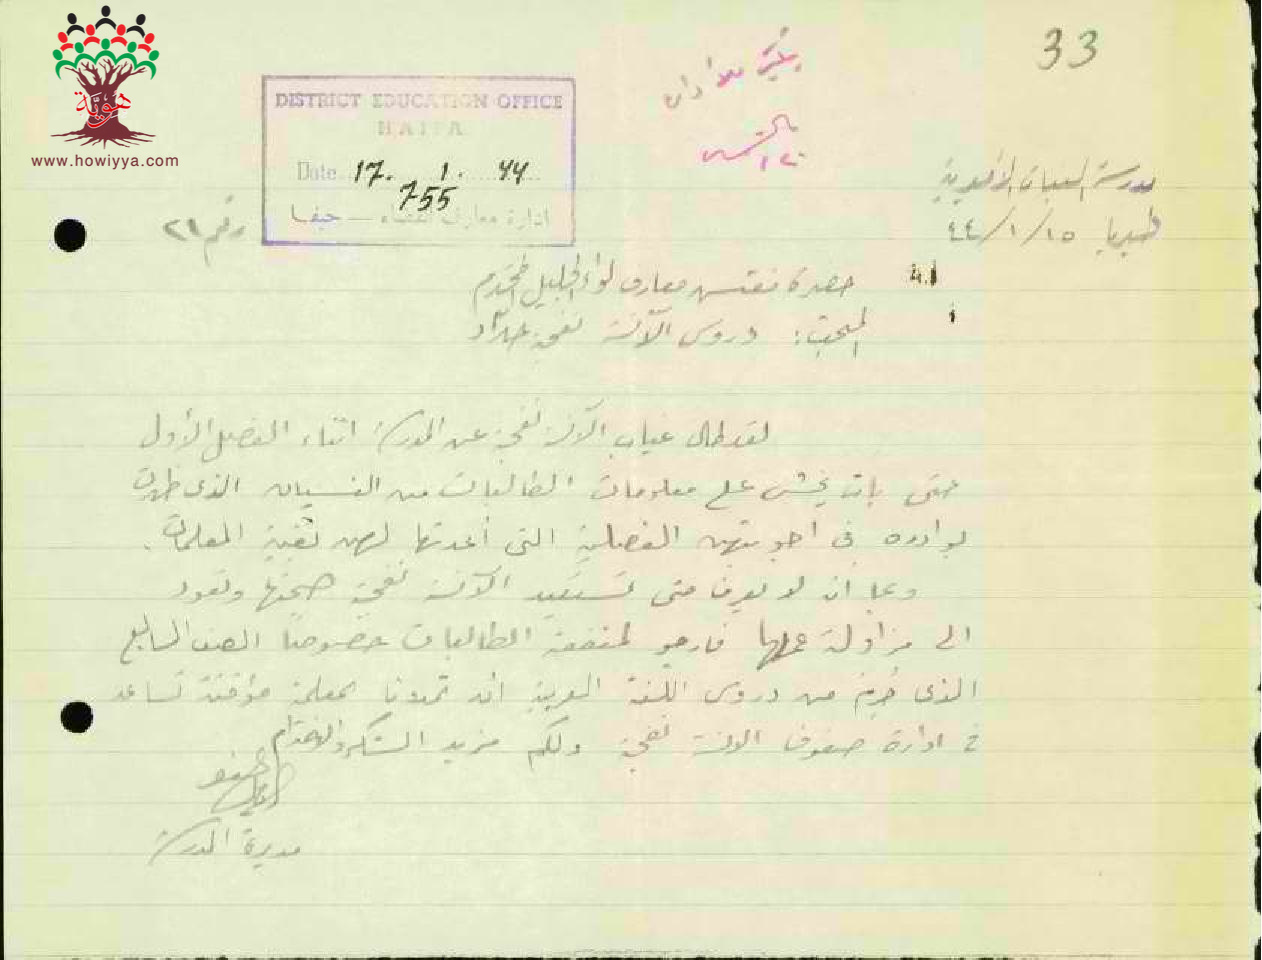 33
هويّة
www.howiyya.com
DISTRICT EDUCATION OFFICE
HAIFA
Date 17. 1. 44
755
ادارة معارف القضاء — حيفا
مدرسة البنات الأميرية
طبريا ١٥/١/٤٤
رقم ٢١
حضرة مفتش معارف لواء الجليل المحترم
المبحث: دروس الآنسة نفجة حداد
لقد طال غياب الآنسة نفجة عن المدرسة اثناء الفصل الأول
حتى بات يخشى على معلومات الطالبات من النسيان الذي ظهرت
بوادره في اجوبتهن الفصلية التي أعدتها لهن بقية المعلمات.
وبما انه لا يعرف متى تستعيد الآنسة نفجة صحتها وتعود
الى مزاولة عملها فارجو لمنفعة الطالبات خصوصا الصف السابع
الذي حُرم من دروس اللغة العربية ان تمدونا بمعلمة مؤقتة تساعد
في ادارة صفوف الانسة نفجة ولكم مزيد الشكر والاحترام
مديرة المدرسة